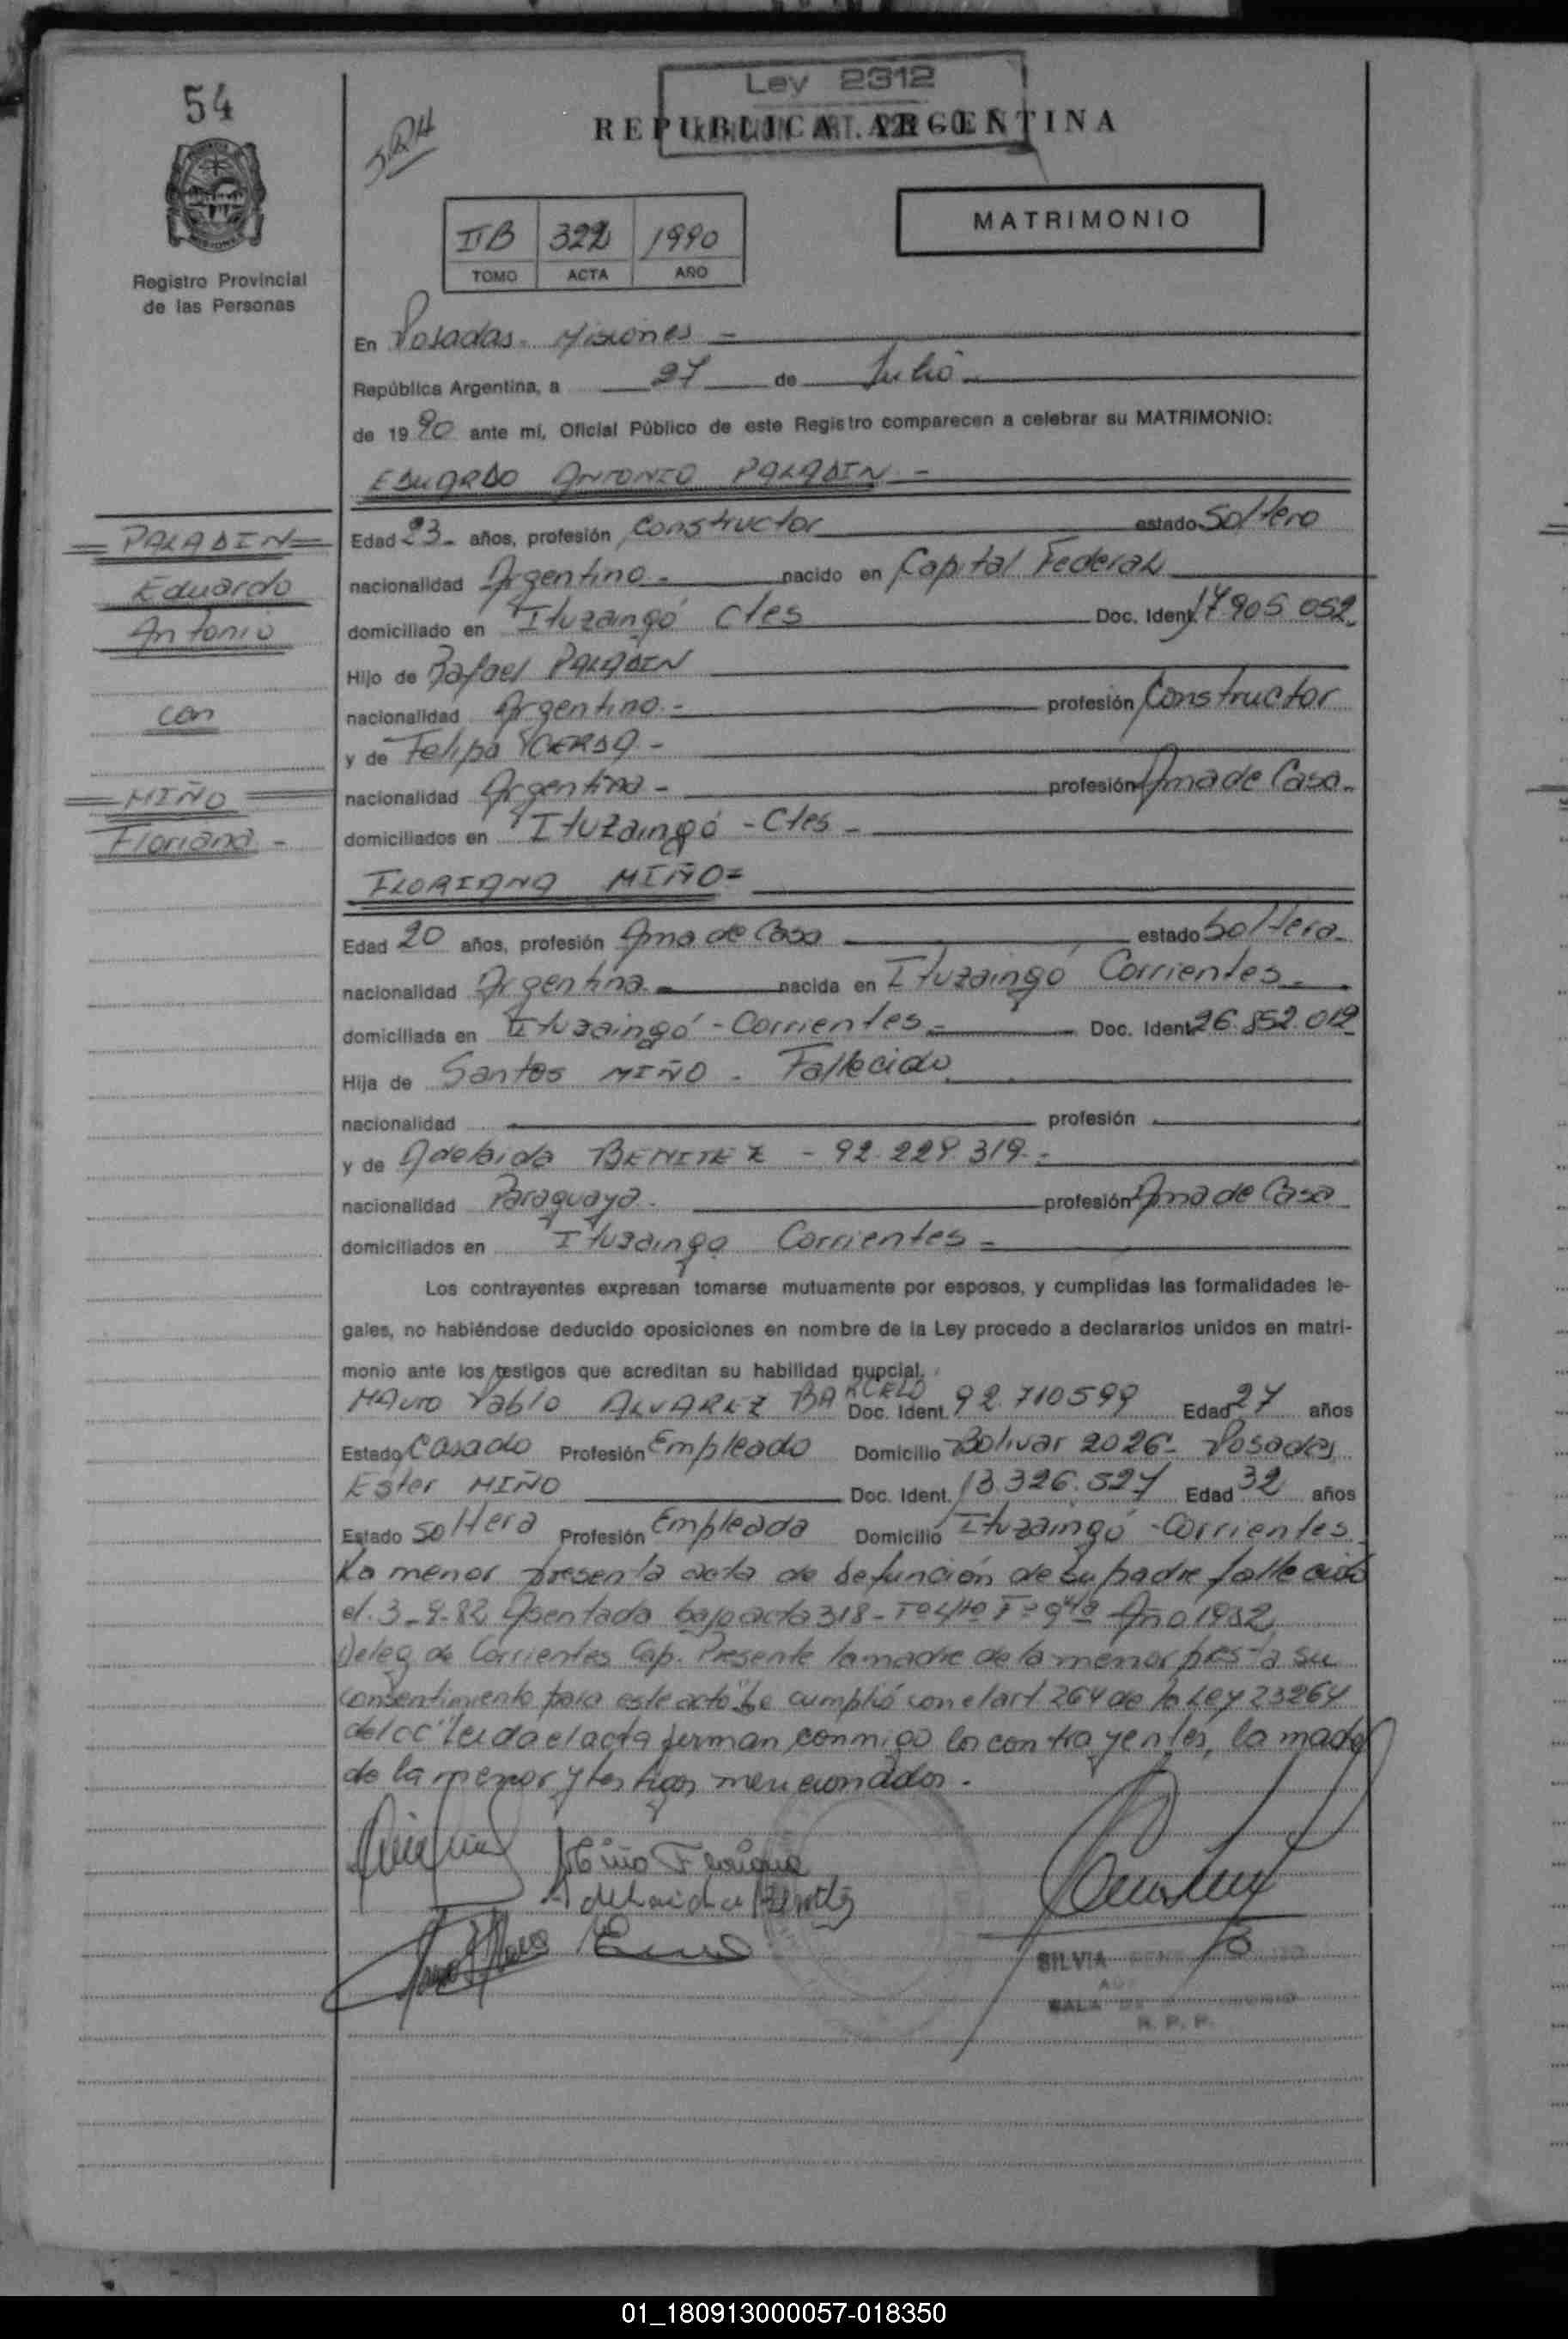 54
Ley 2312
REPUBLICA ARGENTINA
IIB 322 1990
TOMO ACTA AÑO
MATRIMONIO
Registro Provincial
de las Personas
En Posadas. Misiones -
República Argentina, a 27 de Julio
de 1990 ante mí, Oficial Público de este Registro comparecen a celebrar su MATRIMONIO:
EDUARDO ANTONIO PALADIN -
PALADIN
Eduardo
Antonio
con
MIÑO
Floriana -
Edad 23 años, profesión Constructor estado Soltero
nacionalidad Argentino - nacido en Capital Federal
domiciliado en Ituzaingó Ctes Doc. Ident. 17905.052
Hijo de Rafael PALADIN
nacionalidad Argentino - profesión Constructor
y de Felipa CERDA -
nacionalidad Argentina - profesión Ama de Casa.
domiciliados en Ituzaingó - Ctes -
FLORIANA MIÑO =
Edad 20 años, profesión Ama de Casa estado Soltera
nacionalidad Argentina - nacida en Ituzaingó Corrientes -
domiciliada en Ituzaingó - Corrientes - Doc. Ident. 26.852.012
Hija de Santos MIÑO - Fallecido
nacionalidad profesión
y de Adelaida BENITEZ - 92.229.319. -
nacionalidad Paraguaya. profesión Ama de Casa
domiciliados en Ituzaingo Corrientes -
Los contrayentes expresan tomarse mutuamente por esposos, y cumplidas las formalidades le-
gales, no habiéndose deducido oposiciones en nombre de la Ley procedo a declararlos unidos en matri-
monio ante los testigos que acreditan su habilidad nupcial.
Mauro Pablo ALVAREZ BARCELO Doc. Ident. 92.710599 Edad 27 años
Estado Casado Profesión Empleado Domicilio Bolivar 2026 - Posadas
Ester MIÑO Doc. Ident. 13.326.527 Edad 32 años
Estado Soltera Profesión Empleada Domicilio Ituzaingó - Corrientes
La menor presenta acta de defunción de su padre fallecido
el 3-9-82 Asentada bajo acta 318 - Año 1982
Deleg de Corrientes Cap. Presente la madre de la menor presta su
consentimiento para este acto Se cumplió con el art. 264 de la Ley 23264
del CC" Leida el acta firman conmigo los contrayentes, la madre
de la menor y testigos mencionados -
Miño Floriana
Adelaida Benitez
SILVIA
R. P. P.
01_180913000057-018350